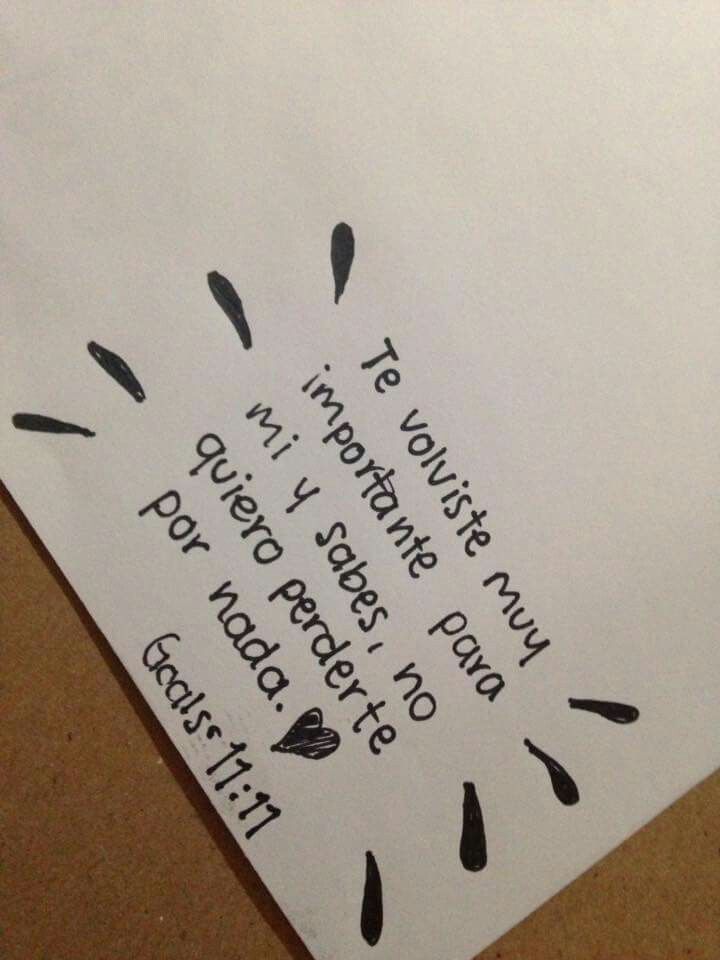 Te volviste muy
importante para
mi y sabes, no
quiero perderte
por nada.
Goalss 11:11